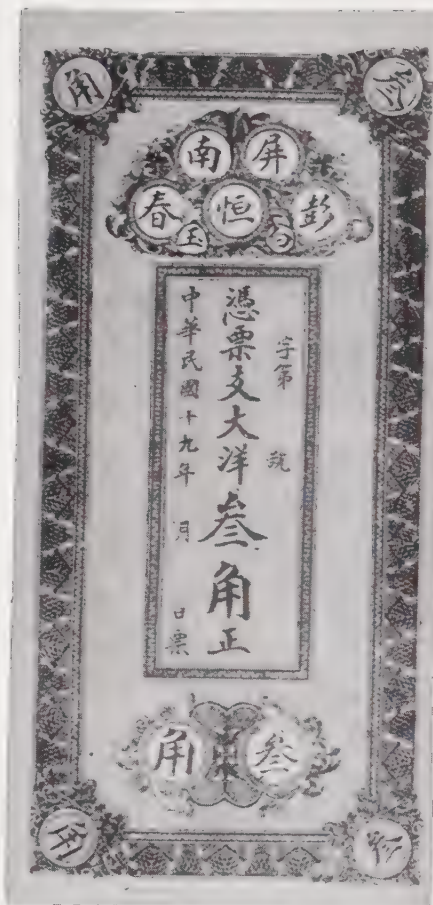 叁角
屏南
彭恒春
玉
字第 號
憑票支大洋叁角正
中華民國十九年 月 日票
叁角
叁角